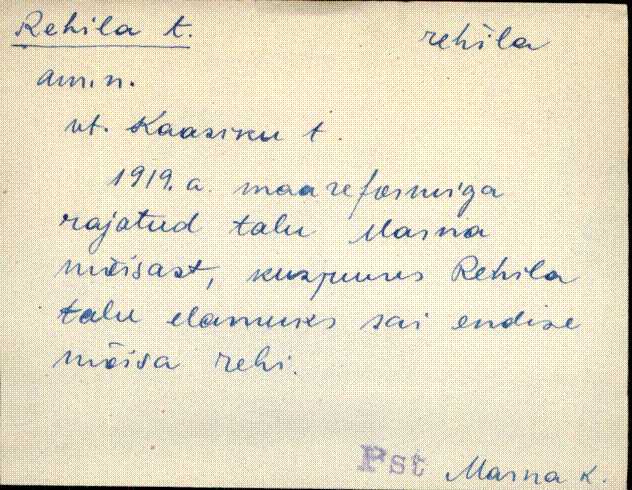 Rehila t. rehila
am.n.
vt. Kaasiku t.
1919.a. maareformiga
rajatud talu Masna
mõisast, kusjuures Rehila
talu elamuks sai endise
mõisa rehi.
Pst Masna k.